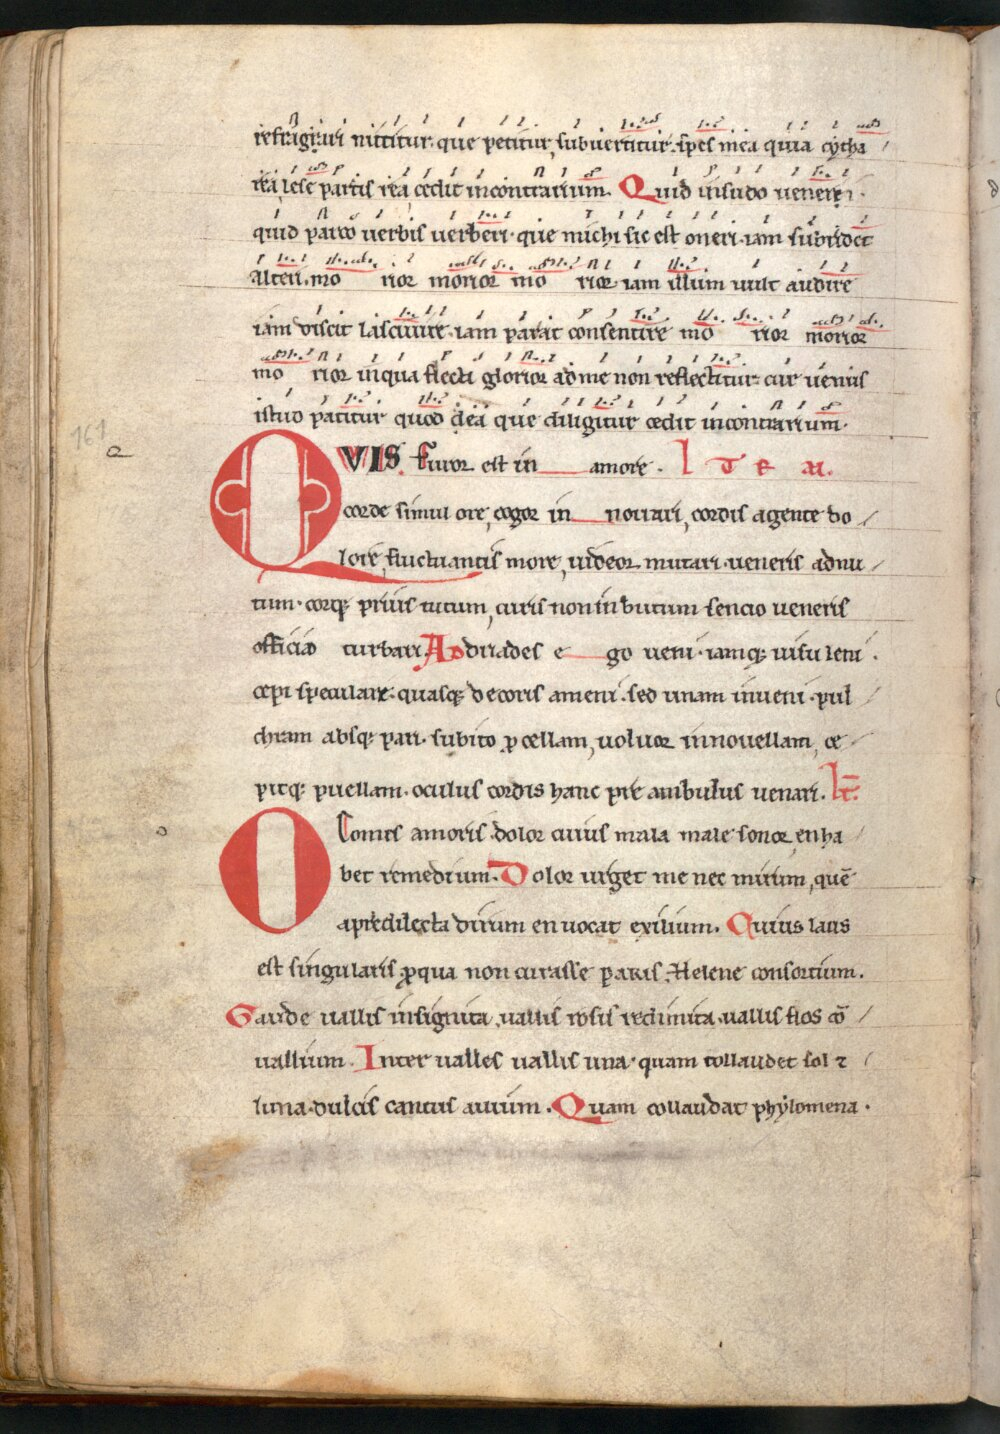 refrigerari nittitur. que petitur, subuertitur. spes mea quia cytha
rea lese partis rea cedit incontrarium. Quid insudo veneri.
quid parco verbis verberi. que michi sic est oneri. iam subridet
alteri. mo rior morior mo rior iam illum uult audire
iam discit lasciuire. iam parat consentire mo rior morior
mo rior inqua flecti glorior ad me non reflectitur. cur uenus
istud patitur quod dea que diligitur cedit incontrarium.
161
QVIS furor est in amore. ITEM.
corde simul ore, cogor in nouari, cordis agente do
lore, fluctuantis more, uideor mutari. ueneris adnu
tum. corq; prius tutum, curis non inbutum. sencio ueneris
officio turbari. Ad driades e go ueni. iamq; uisu leni.
cepi speculare. quasq; decoris ameni. sed unam inueni. pul
chram absq; pari. subito procellam, uoluor in nouellam, ce
pitq; puellam. oculus cordis hanc preambulus uenari. It.
O Comes amoris dolor cuius mala male solor, en ha
bet remedium. Dolor urget me nec mirum, quē
a predilecta dirum en uocat exilium. Cuius laus
est singularis pro qua non curasse Paris Helene consortium.
Gaude uallis insignita, uallis rosis redimita. uallis flos cō
uallium. Inter ualles uallis una. quam collaudet sol ⁊
luna. dulcis cantus auium. Quam collaudat phylomena.